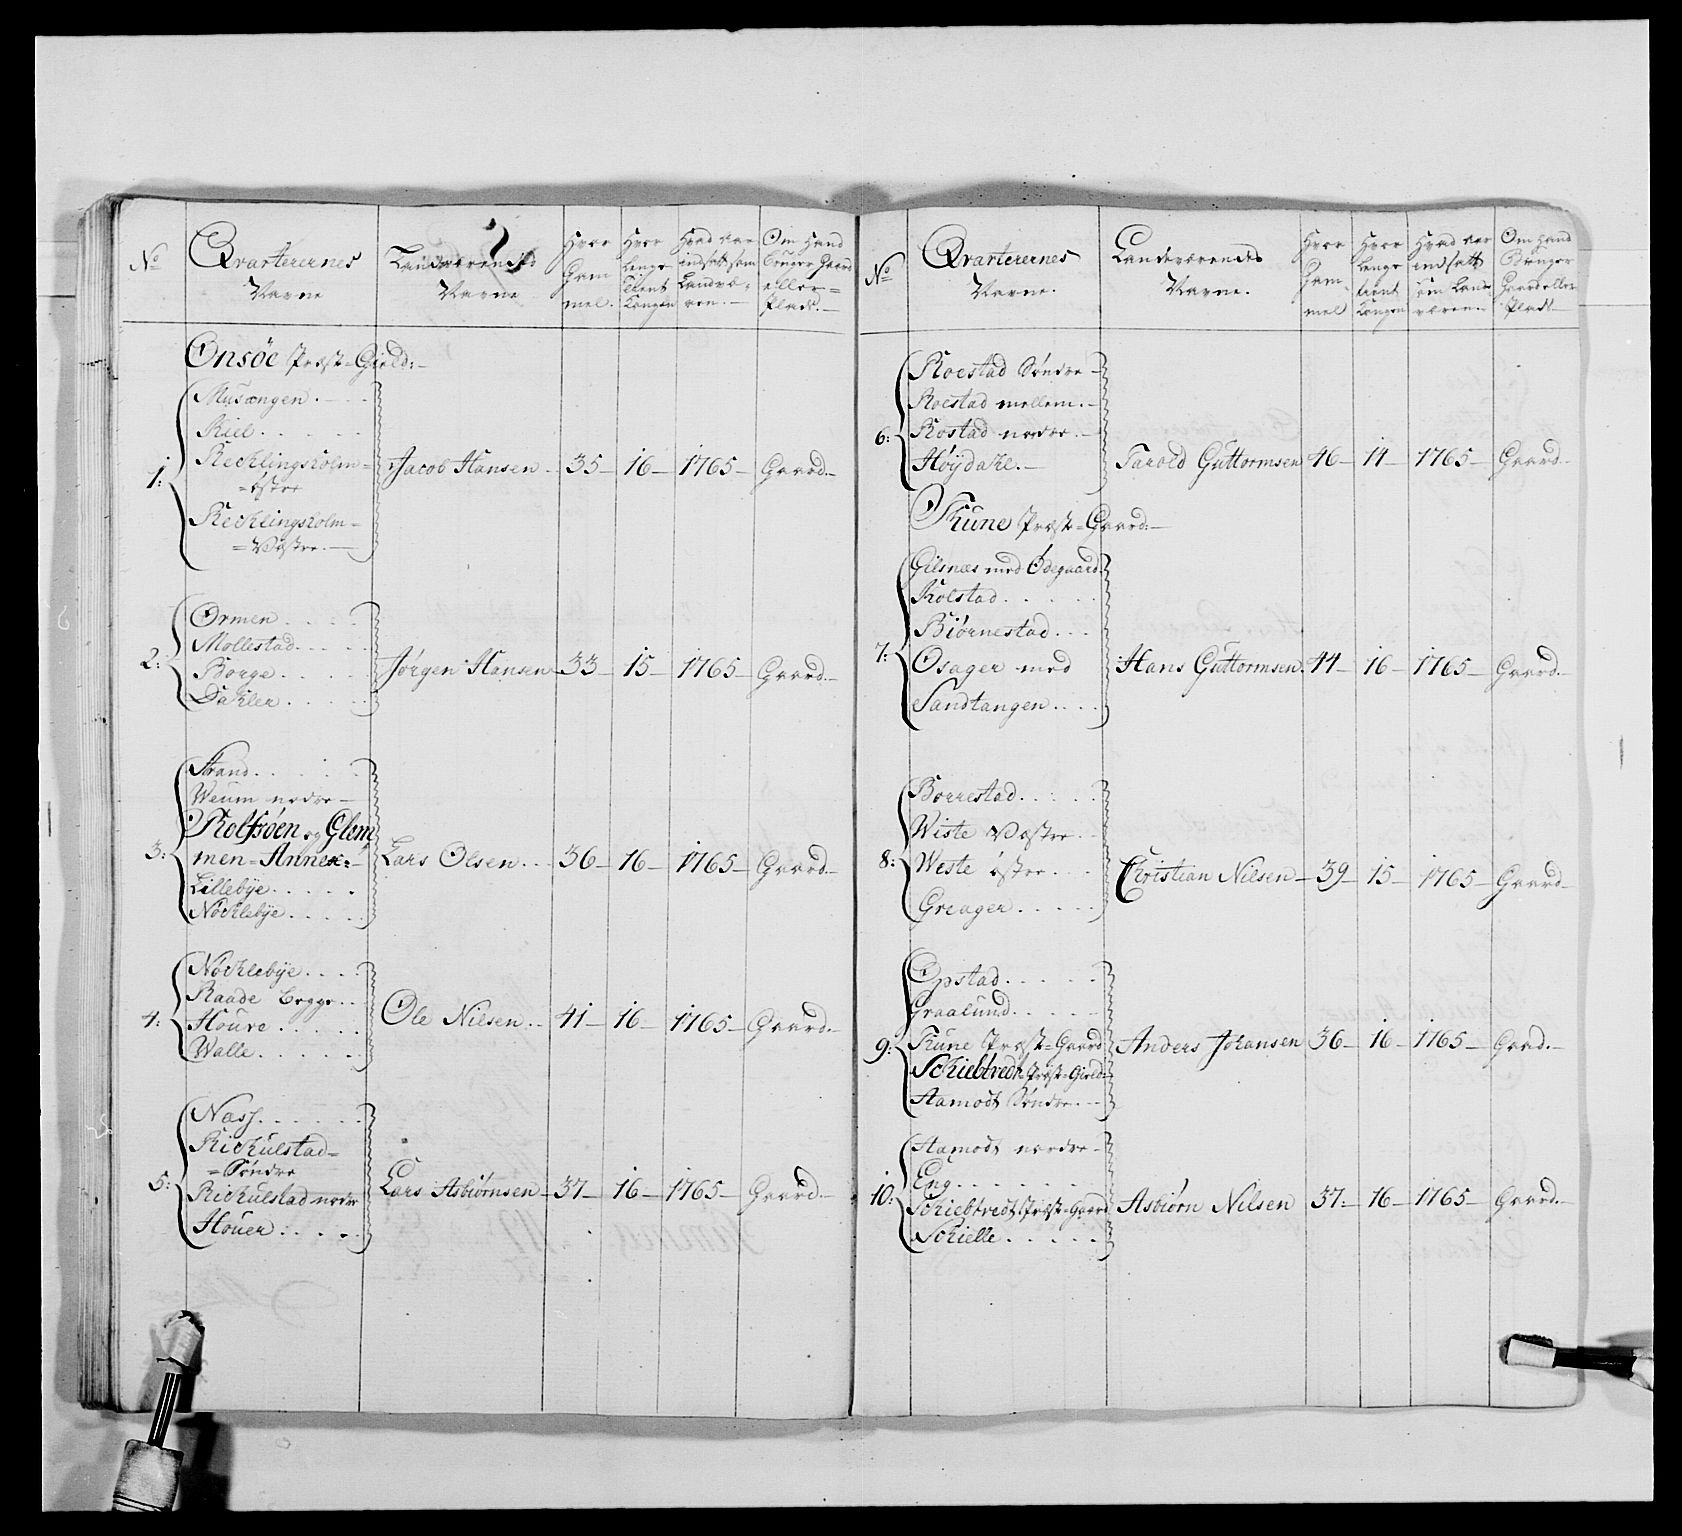 No
Qvarterernes
Navne
Landeværendes
Navne
Hvor
Gam
mel.
Hvor
lenge
tient
Kongen
Hvad aar
indsatt som
Landvæ-
ren.
Om Hand
bruger Gaard
eller
Plads.
Onsøe Præst-Gield:
1:
Musængen.
Kiil.
Kecklingsholm
=østre
Kecklingsholm
=Væstre.
Jacob Hansen. 35 16 1765 Gaard.
2:
Ormen
Mollestad
Borge
Dahler
Jørgen Hansen 33 15 1765 Gaard.
3:
Strand
Weum nedre
Rolfsøen og Glem
men-Annex:
Lillebye
Nöcklebye
Lars Olsen 36 16 1765 Gaard.
4:
Nöcklebye
Raade begge
Houre
Walle
Ole Nilsen 41 16 1765 Gaard.
5:
Næss
Kichulstad
=Søndre
Kichulstad nordr
Houer
Lars Asbiørnsen 37 16 1765 Gaard.
No
Qvarterernes
Navne.
Landeværendes
Navne.
Hvor
Gam
mel
Hvor
lenge
tient
Kongen
Hvad aar
indsatt
som Land
væren.
Om Hand
Bruger
Gaard eller
Plads
6:
Roestad Søndre
Roestad mellem.
Rostad nordre.
Høydahl.
Tarold Guttormsen 46 14 1765 Gaard.
Thune Præst-Gaard:
7:
Gilsnæs med Ødegaard.
Kolstad
Biørnestad
Osager med
Sandtangen
Hans Guttormsen 44 16 1765 Gaard.
8:
Borrestad
Wiste Væstre
Weste østre
Greager
Christian Nilsen 39 15 1765 Gaard
9:
Opstad
Graalund
Thune Præst-Gaard
Schiebtvedt Præst-Gield
Aamodt Søndre
Anders Johansen 36 16 1765 Gaad.
10:
Aamodt nordre
Eng
Schiebtvedt Præst-Gaard
Schielle
Asbiørn Nilsen 37 16 1765 Gaard.